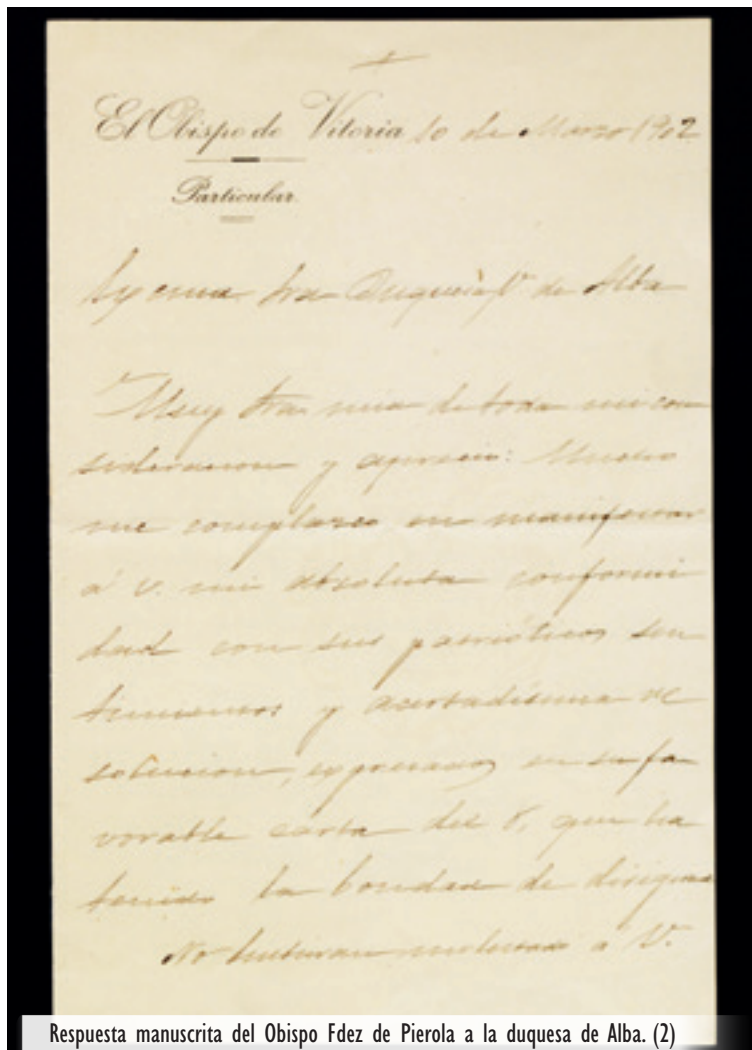 El Obispo de Vitoria 10 de Marzo 1902
Particular.
Sra Duquesa de Alba
Muy Sra mia de toda mi con
sideracion y aprecio: Mucho
me complazco en manifestar
á V. mi absoluta conformi
dad con sus patrióticos sen
timientos y acertadisima re
solucion, expresados en su fa
vorable carta del 8, que ha
tenido la bondad de dirigirme
No hubieran molestado á V.
Respuesta manuscrita del Obispo Fdez de Pierola a la duquesa de Alba. (2)